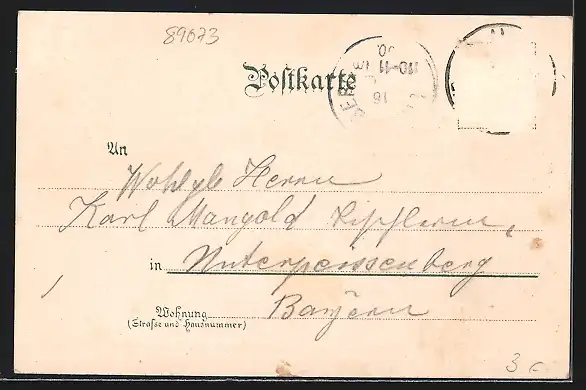 89073
Postkarte
BER
10-11
16
An
Wohlgb Herrn
Karl Mangold
in Unterpeissenberg
Wohnung Bayern
(Strafse und Hausnummer)
3